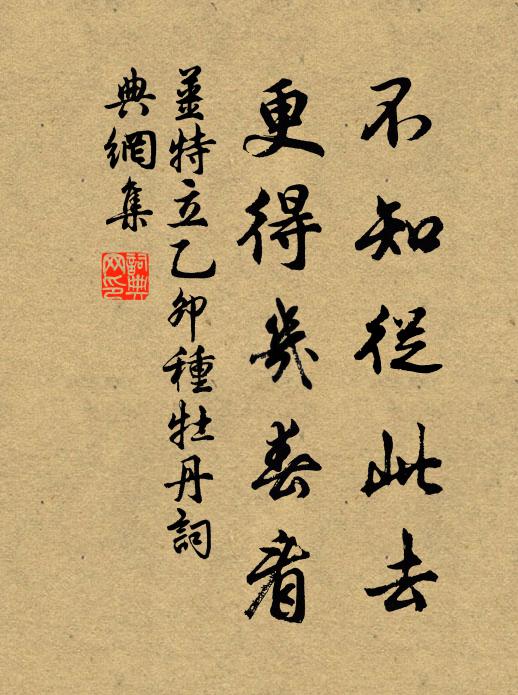 不知從此去
更得幾春看
姜特立乙卯種牡丹詞
典網集
詞典
网印